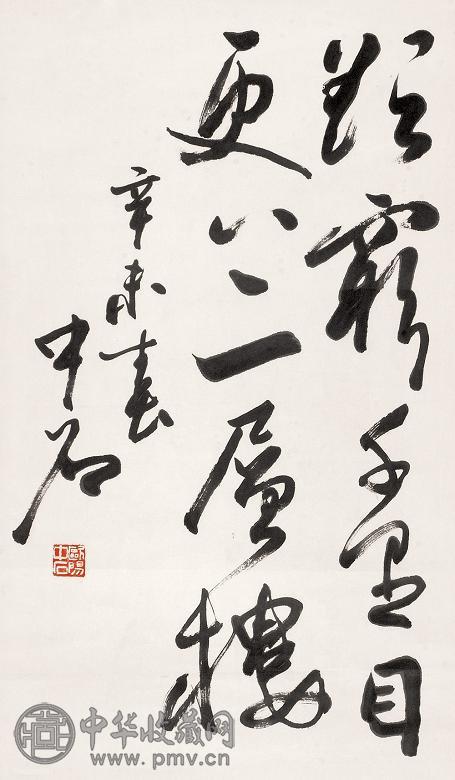 欲窮千里目
更上一層樓
辛未春
中石
歐陽中石
中华收藏网
www.pmv.cn